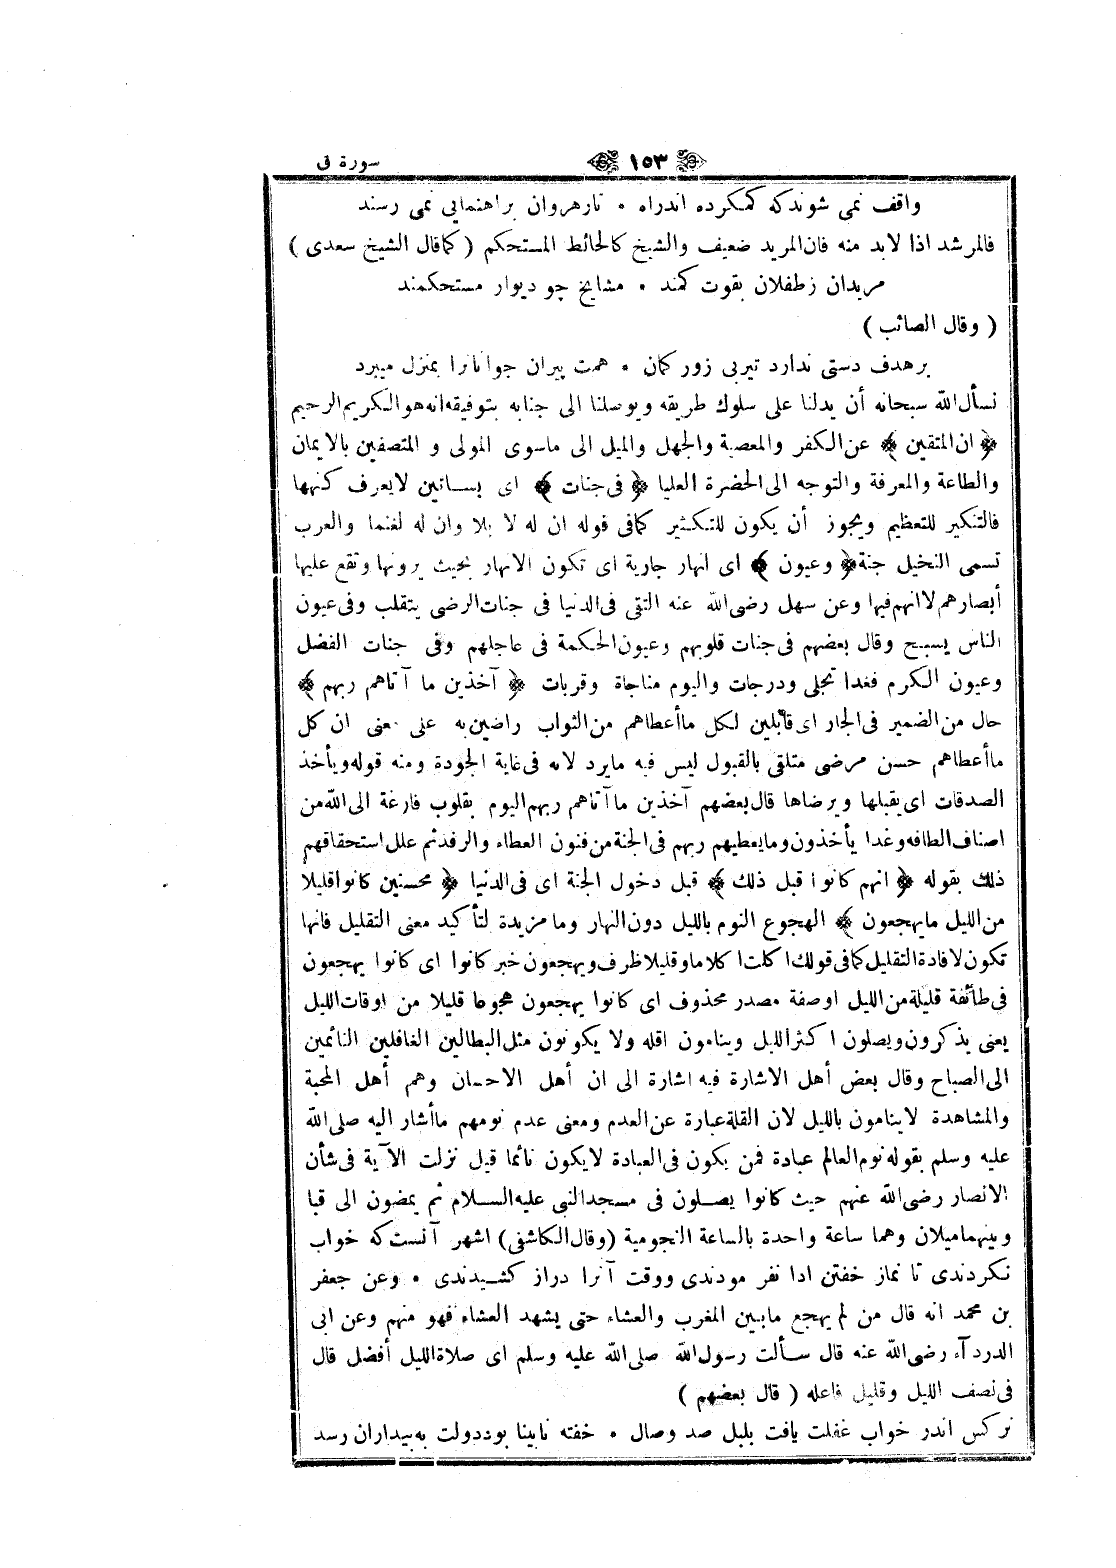 سورة ق
١٥٣
واقف نمى شوندكه كمكرده اندراه • تارهروان براهنمايى نمى رسند
فالمرشد اذا لابد منه فان المريد ضعيف والشيخ كالحائط المستحكم ( كما قال الشيخ سعدى )
مريدان زطفلان بقوت كمند • مشايخ چو ديوار مستحكمند
( وقال الصائب )
برهدف دستى ندارد تيربى زور كمان • همت پيران جوانانرا بمنزل ميبرد
نسأل الله سبحانه أن يدلنا على سلوك طريقه ويوصلنا الى جنابه بتوفيقه انه هو الكريم الرحيم
﴿ ان المتقين ﴾ عن الكفر والمعصية والجهل والميل الى ماسوى المولى و المتصفين بالايمان
والطاعة والمعرفة والتوجه الى الحضرة العليا ﴿ فى جنات ﴾ اى بساتين لايعرف كنهها
فالتنكير للتعظيم ويجوز أن يكون للتكثير كمافى قوله ان له لا بلا وان له لغنما والعرب
تسمى النخيل جنة ﴿ وعيون ﴾ اى انهار جارية اى تكون الانهار بحيث يرونها وتقع عليها
أبصارهم لاانهم فيها وعن سهل رضى الله عنه التقى فى الدنيا فى جنات الرضى يتقلب وفى عيون
الناس يسبح وقال بعضهم فى جنات قلوبهم وعيون الحكمة فى عاجلهم وفى جنات الفضل
وعيون الكرم فغدا تجلى ودرجات واليوم مناجاة وقربات ﴿ آخذين ما آتاهم ربهم ﴾
حال من الضمير فى الجار اى قابلين لكل ماأعطاهم من الثواب راضين به على معنى ان كل
ماأعطاهم حسن مرضى متلقى بالقبول ليس فيه مايرد لانه فى غاية الجودة ومنه قوله ويأخذ
الصدقات اى يقبلها ويرضاها قال بعضهم آخذين ماآتاهم ربهم اليوم بقلوب فارغة الى الله من
اصناف الطافه وغدا يأخذون ومايعطيهم ربهم فى الجنة من فنون العطاء والرفد ثم علل استحقاقهم
ذلك بقوله ﴿ انهم كانوا قبل ذلك ﴾ قبل دخول الجنة اى فى الدنيا ﴿ محسنين كانوا قليلا
من الليل مايهجعون ﴾ الهجوع النوم بالليل دون النهار وما مزيدة لتأكيد معنى التقليل فانها
تكون لافادة التقليل كمافى قولك اكلت اكلا ما وقليلا ظرف ويهجعون خبر كانوا اى كانوا يهجعون
فى طائفة قليلة من الليل اوصفة مصدر محذوف اى كانوا يهجعون هجوعا قليلا من اوقات الليل
يعنى يذكرون ويصلون اكثر الليل وينامون اقله ولا يكونون مثل البطالين الغافلين النائمين
الى الصباح وقال بعض أهل الاشارة فيه اشارة الى ان أهل الاحسان وهم أهل المحبة
والمشاهدة لاينامون بالليل لان القلة عبارة عن العدم ومعنى عدم نومهم ماأشار اليه صلى الله
عليه وسلم بقوله نوم العالم عبادة فمن يكون فى العبادة لايكون نائما قيل نزلت الآية فى شأن
الانصار رضى الله عنهم حيث كانوا يصلون فى مسجد النبى عليه السلام ثم يمضون الى قبا
وبينهما ميلان وهما ساعة واحدة بالساعة النجومية (وقال الكاشفى) اشهر آنست كه خواب
نكردندى تا نماز خفتن ادا نفر مودندى ووقت آنرا دراز كشيدندى • وعن جعفر
بن محمد انه قال من لم يهجع مابين المغرب والعشاء حتى يشهد العشاء فهو منهم وعن ابى
الدرداء رضى الله عنه قال سألت رسول الله صلى الله عليه وسلم اى صلاة الليل أفضل قال
فى نصف الليل وقليل فاعله ( قال بعضهم )
نركس اندر خواب غفلت يافت بلبل صد وصال • خفته نابينا بود دولت به بيداران رسد